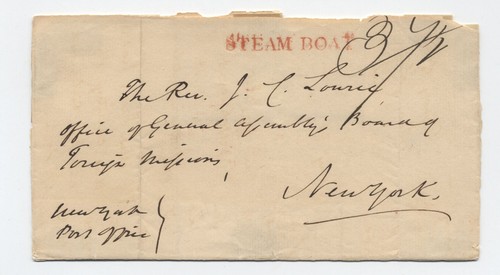 STEAM BOAT
The Rev. J. C. Lowrie
Office of General Assembly's Board of
Foreign Missions
New York.
New York
Post Office